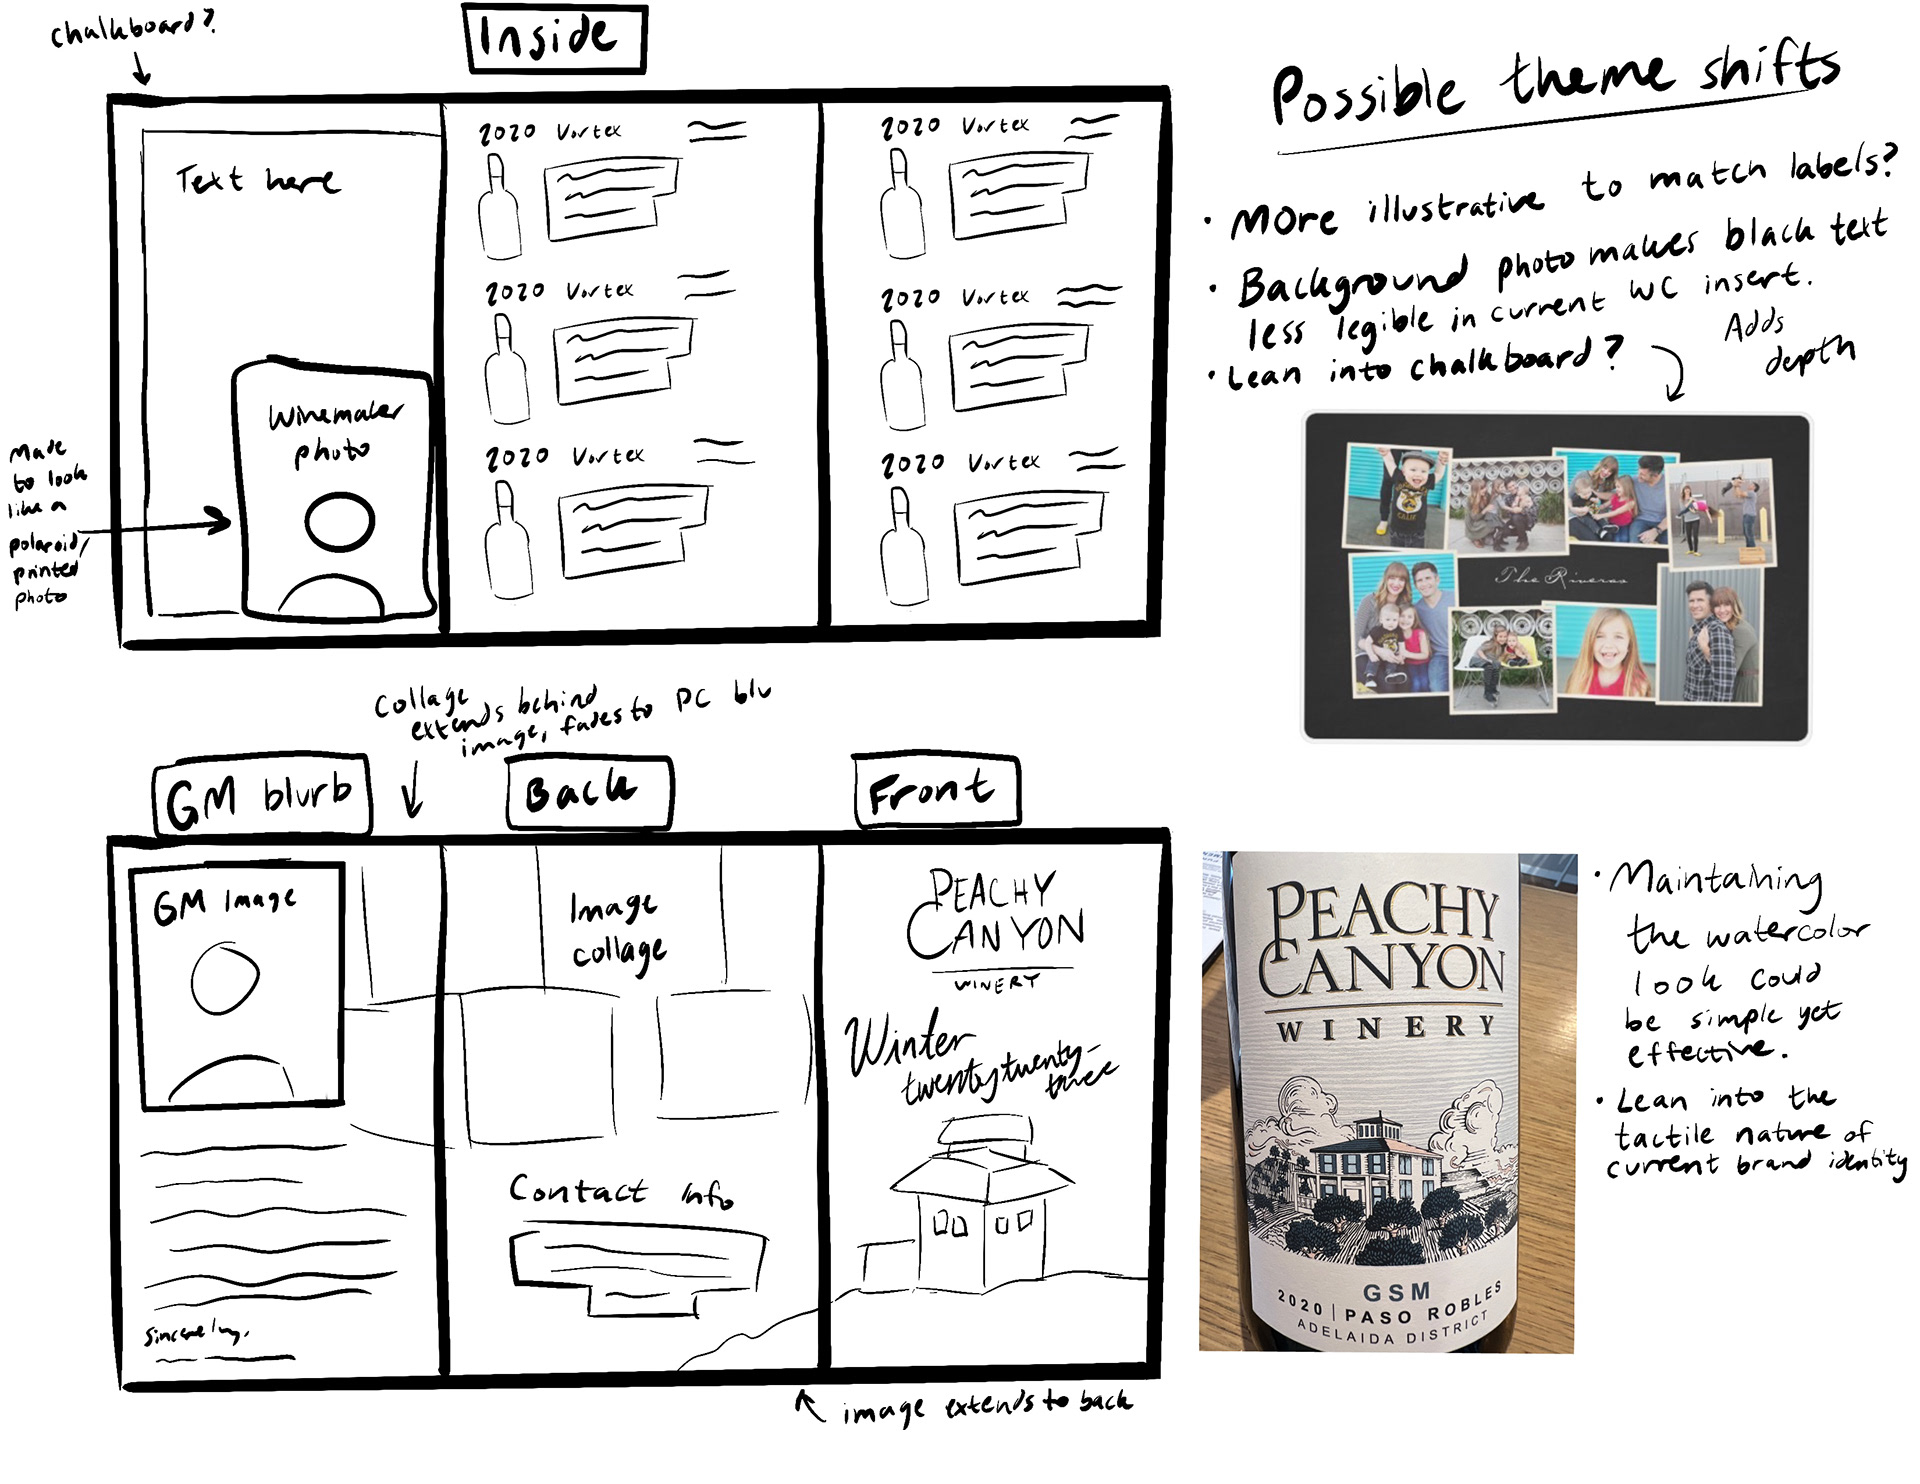 chalkboard?
Inside
Text here
Winemaker
photo
Made
to look
like a
polaroid/
printed
photo
2020 Vortex
2020 Vortex
2020 Vortex
2020 Vortex
2020 Vortex
2020 Vortex
Possible theme shifts
• More illustrative to match labels?
• Background photo makes black text
less legible in current WC insert.
• Lean into chalkboard?
Adds
depth
The Riveras
CALIF
Collage
extends behind
image, fades to PC blu
GM blurb
Back
Front
GM Image
Sincerely,
Image
collage
Contact info
PEACHY
CANYON
WINERY
Winter
twentytwenty-
three
image extends to back
PEACHY
CANYON
WINERY
GSM
2020 | PASO ROBLES
ADELAIDA DISTRICT
• Maintaining
the watercolor
look could
be simple yet
effective.
• Lean into the
tactile nature of
current brand identity